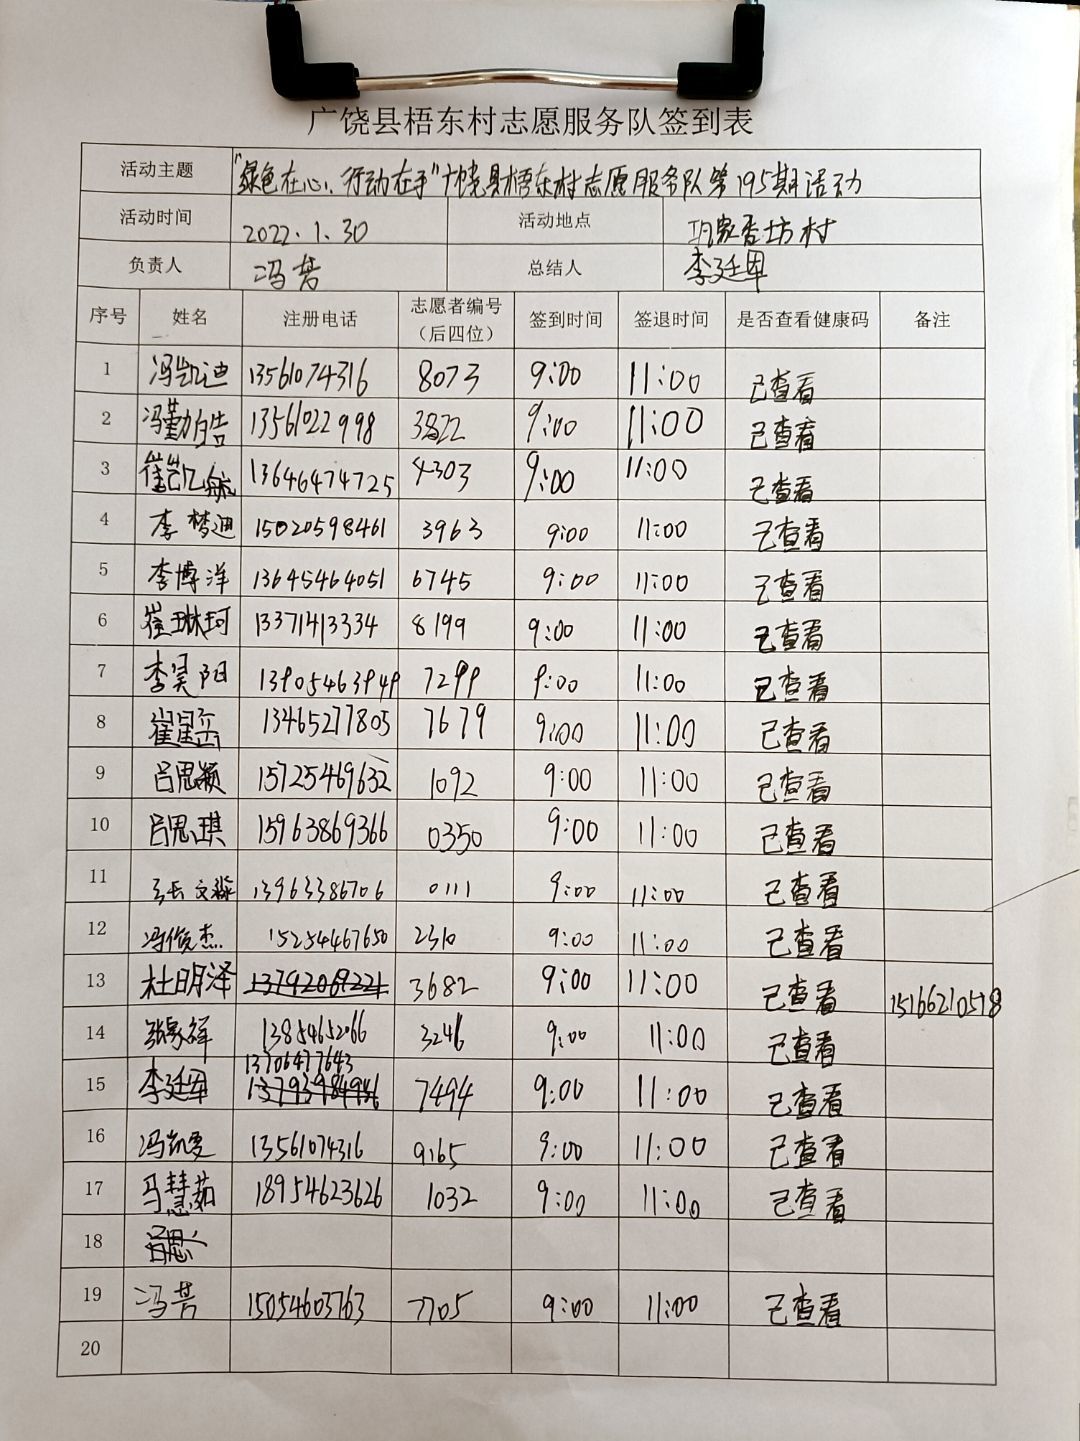 广饶县梧东村志愿服务队签到表
活动主题 "绿色在心、行动在手"广饶县梧东村志愿服务队第195期活动
活动时间 2022.1.30 活动地点 巩家香坊村
负责人 冯芳 总结人 李廷军
序号 姓名 注册电话 志愿者编号（后四位） 签到时间 签退时间 是否查看健康码 备注
1 冯凯迪 13561074316 8073 9:00 11:00 已查看
2 冯勤皓 13561022998 3822 9:00 11:00 已查看
3 崔凯航 13646474725 4303 9:00 11:00 已查看
4 李梦迪 15020598461 3963 9:00 11:00 已查看
5 李博洋 13645464051 6745 9:00 11:00 已查看
6 崔琳珂 13371413334 8199 9:00 11:00 已查看
7 李昊阳 13905463949 7299 9:00 11:00 已查看
8 崔星岳 13465277805 7679 9:00 11:00 已查看
9 吕思颖 15725469632 1092 9:00 11:00 已查看
10 吕思琪 15963869366 0350 9:00 11:00 已查看
11 张文淼 13963386706 0111 9:00 11:00 已查看
12 冯俊杰 15254467650 2310 9:00 11:00 已查看
13 杜明泽 13792069221 3682 9:00 11:00 已查看 15166210518
14 张家祥 13854652066 3246 9:00 11:00 已查看
13706477643
15 李廷军 7494 9:00 11:00 已查看
16 冯凯雯 13561074316 9165 9:00 11:00 已查看
17 马慧茹 18954623626 1032 9:00 11:00 已查看
18 吕思
19 冯芳 15054603763 7705 9:00 11:00 已查看
20